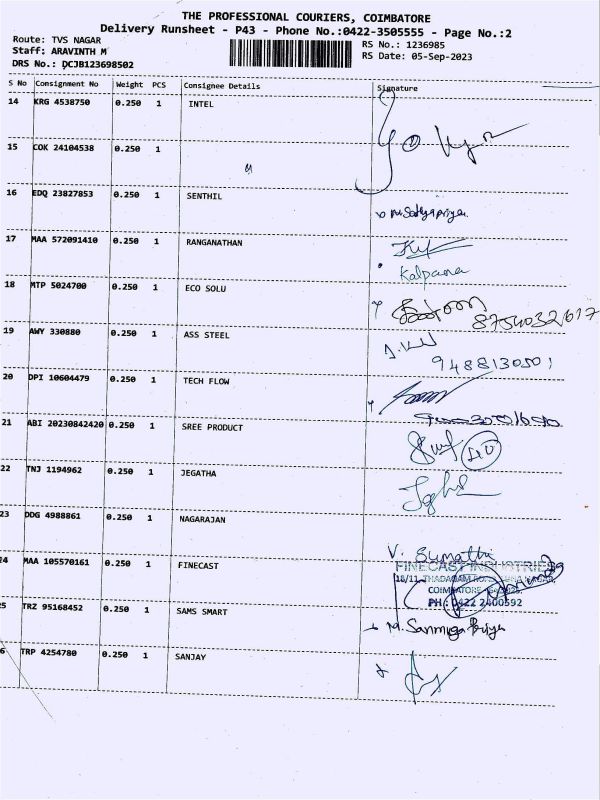 THE PROFESSIONAL COURIERS, COIMBATORE
Delivery Runsheet - P43 - Phone No.:0422-3505555 - Page No.:2
Route: TVS NAGAR
Staff: ARAVINTH M
DRS No.: DCJB123698502
RS No.: 1236985
RS Date: 05-Sep-2023
S No Consignment No Weight PCS Consignee Details Signature
14 KRG 4538750 0.250 1 INTEL
15 COK 24104538 0.250 1
16 EDQ 23827853 0.250 1 SENTHIL
17 MAA 572091410 0.250 1 RANGANATHAN
Kalpana
18 MTP 5024700 0.250 1 ECO SOLU
8754032617
19 AWY 330880 0.250 1 ASS STEEL
9488130501
20 DPI 10604479 0.250 1 TECH FLOW
21 ABI 20230842420 0.250 1 SREE PRODUCT
22 TNJ 1194962 0.250 1 JEGATHA
23 DDG 4988861 0.250 1 NAGARAJAN
V. Sumathi
24 MAA 105570161 0.250 1 FINECAST
FINECAST INDUSTRIES
COIMBATORE
PH: 0422 2400592
25 TRZ 95168452 0.250 1 SAMS SMART
M. Sanmuga Priya
26 TRP 4254780 0.250 1 SANJAY